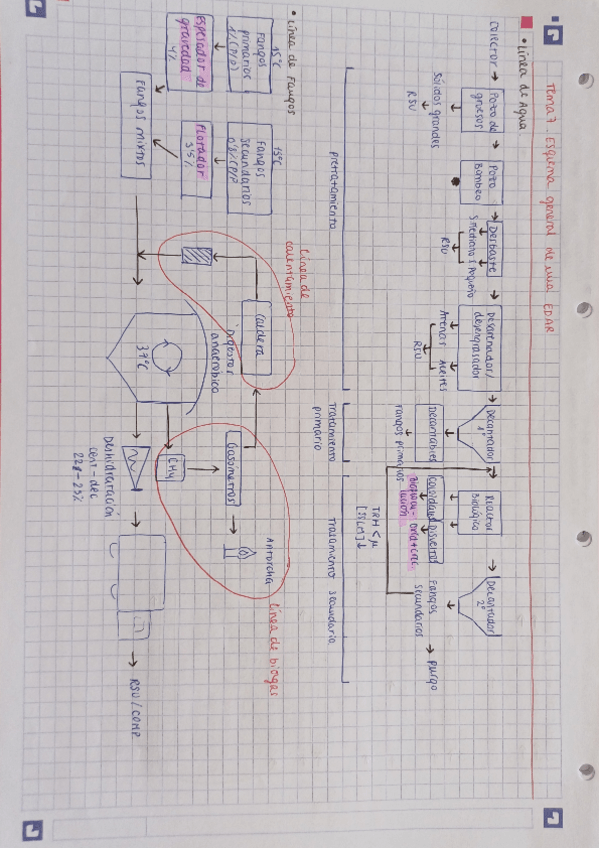 Tema 7. Esquema general de una EDAR
• Línea de Agua.
Colector → Pozo de gruesos → Pozo Bombeo → Desbaste → Desarenador/desengrasador → Decantador 1º → Reactor Biológico → Decantador 2º
Sólidos grandes
RSU
S. medianos Pequeño
RSU
Arenas Aceites
RSU
Decantables
Fangos primarios
Coloidal Disueltos
TRH < μ
[SSLM] ↓
Fangos secundarios → purga
pretratamiento
Tratamiento primario
Tratamiento secundario
• Línea de Fangos
15ºC
Fangos primarios
1% (P/P)
Espesador de gravedad
4%
15ºC
Fangos secundarios
0'8% (P/P)
Flotador
3'5%
Fangos mixtos
Línea de calentamiento
Caldera
Digestor anaeróbico
37ºC
Gasómetros
CH4
Antorcha
Línea de biogas
Deshidratación
cent-dec
22%-25%
→ RSU/COMP